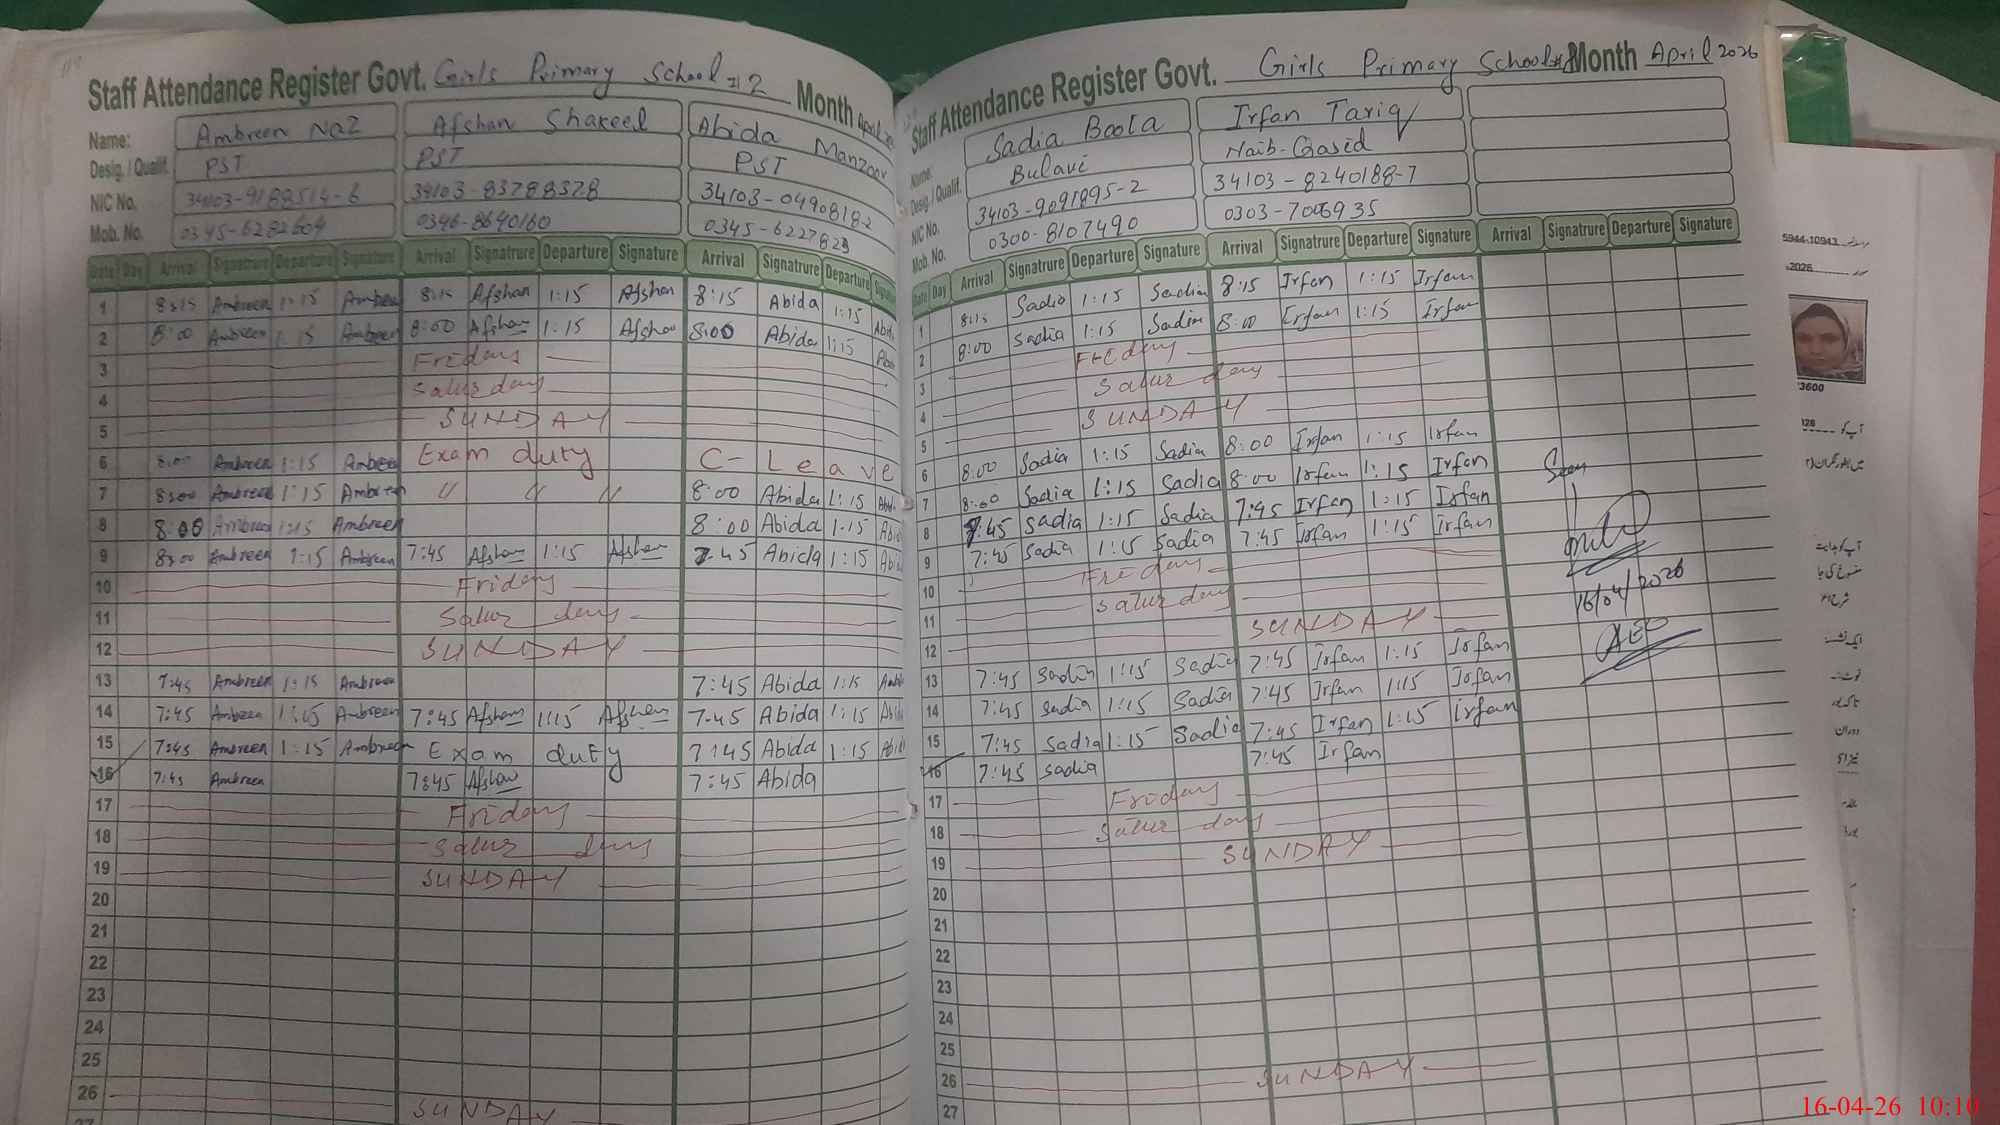 Staff Attendance Register Govt. Girls Primary School #2 Month April
Name: Ambreen Naz Afshan Shakeel Abida Manzoor
Desig. / Qualif. PST PST PST
NIC No. 34103-9188514-6 34103-83788378 34103-04908182
Mob. No. 0345-6282604 0346-8640160 0345-6227829
Date Day Arrival Signatrure Departure Signature Arrival Signatrure Departure Signature Arrival Signatrure Departure
1 8:15 Ambreen 1:15 Ambreen 8:15 Afshan 1:15 Afshan 8:15 Abida 1:15 Abida
2 8:00 Ambreen 1:15 Ambreen 8:00 Afshan 1:15 Afshan 8:00 Abida 1:15
3 Fridays
4 Satur days
5 SUNDAY
6 8:00 Ambreen 1:15 Ambreen Exam duty C-Leave
7 8:00 Ambreen 1:15 Ambreen " " " 8:00 Abida 1:15 Abid
8 8:00 Ambreen 1:15 Ambreen 8:00 Abida 1:15 Abid
9 8:00 Ambreen 1:15 Ambreen 7:45 Afshan 1:15 Afshan 7:45 Abida 1:15 Abid
10 Fridays
11 Satur days
12 SUNDAY
13 7:45 Ambreen 1:15 Ambreen 7:45 Abida 1:15
14 7:45 Ambreen 1:15 Ambreen 7:45 Afshan 1:15 Afshan 7:45 Abida 1:15 Abid
15 7:45 Ambreen 1:15 Ambreen Exam duty 7:45 Abida 1:15 Abid
16 7:45 Ambreen 7:45 Afshan 7:45 Abida
17 Fridays
18 Satur days
19 SUNDAY
20
21
22
23
24
25
26 SUNDAY
27
Staff Attendance Register Govt. Girls Primary School Month April 2026
Name: Sadia Boota Irfan Tariq
Desig. / Qualif. Bulavi Naib-Qasid
NIC No. 34103-9091895-2 34103-8240188-7
Mob. No. 0300-8107490 0303-7006935
Date Day Arrival Signatrure Departure Signature Arrival Signatrure Departure Signature Arrival Signatrure Departure Signature
1 8:15 Sadia 1:15 Sadia 8:15 Irfan 1:15 Irfan
2 8:00 Sadia 1:15 Sadia 8:00 Irfan 1:15 Irfan
3 Fridays
4 Satur days
5 SUNDAY
6 8:00 Sadia 1:15 Sadia 8:00 Irfan 1:15 Irfan
7 8:00 Sadia 1:15 Sadia 8:00 Irfan 1:15 Irfan
8 7:45 Sadia 1:15 Sadia 7:45 Irfan 1:15 Irfan
9 7:45 Sadia 1:15 Sadia 7:45 Irfan 1:15 Irfan
10 Fridays
11 Satur days
12 SUNDAY
13 7:45 Sadia 1:15 Sadia 7:45 Irfan 1:15 Irfan
14 7:45 Sadia 1:15 Sadia 7:45 Irfan 1:15 Irfan
15 7:45 Sadia 1:15 Sadia 7:45 Irfan 1:15 Irfan
16 7:45 Sadia 7:45 Irfan
17 Fridays
18 Satur days
19 SUNDAY
20
21
22
23
24
25
26 SUNDAY
27
Seen
16/04/2026
AEO
5944-10943
2026
3600
آپ کو
آپ کو ہدایت
16-04-26 10:10